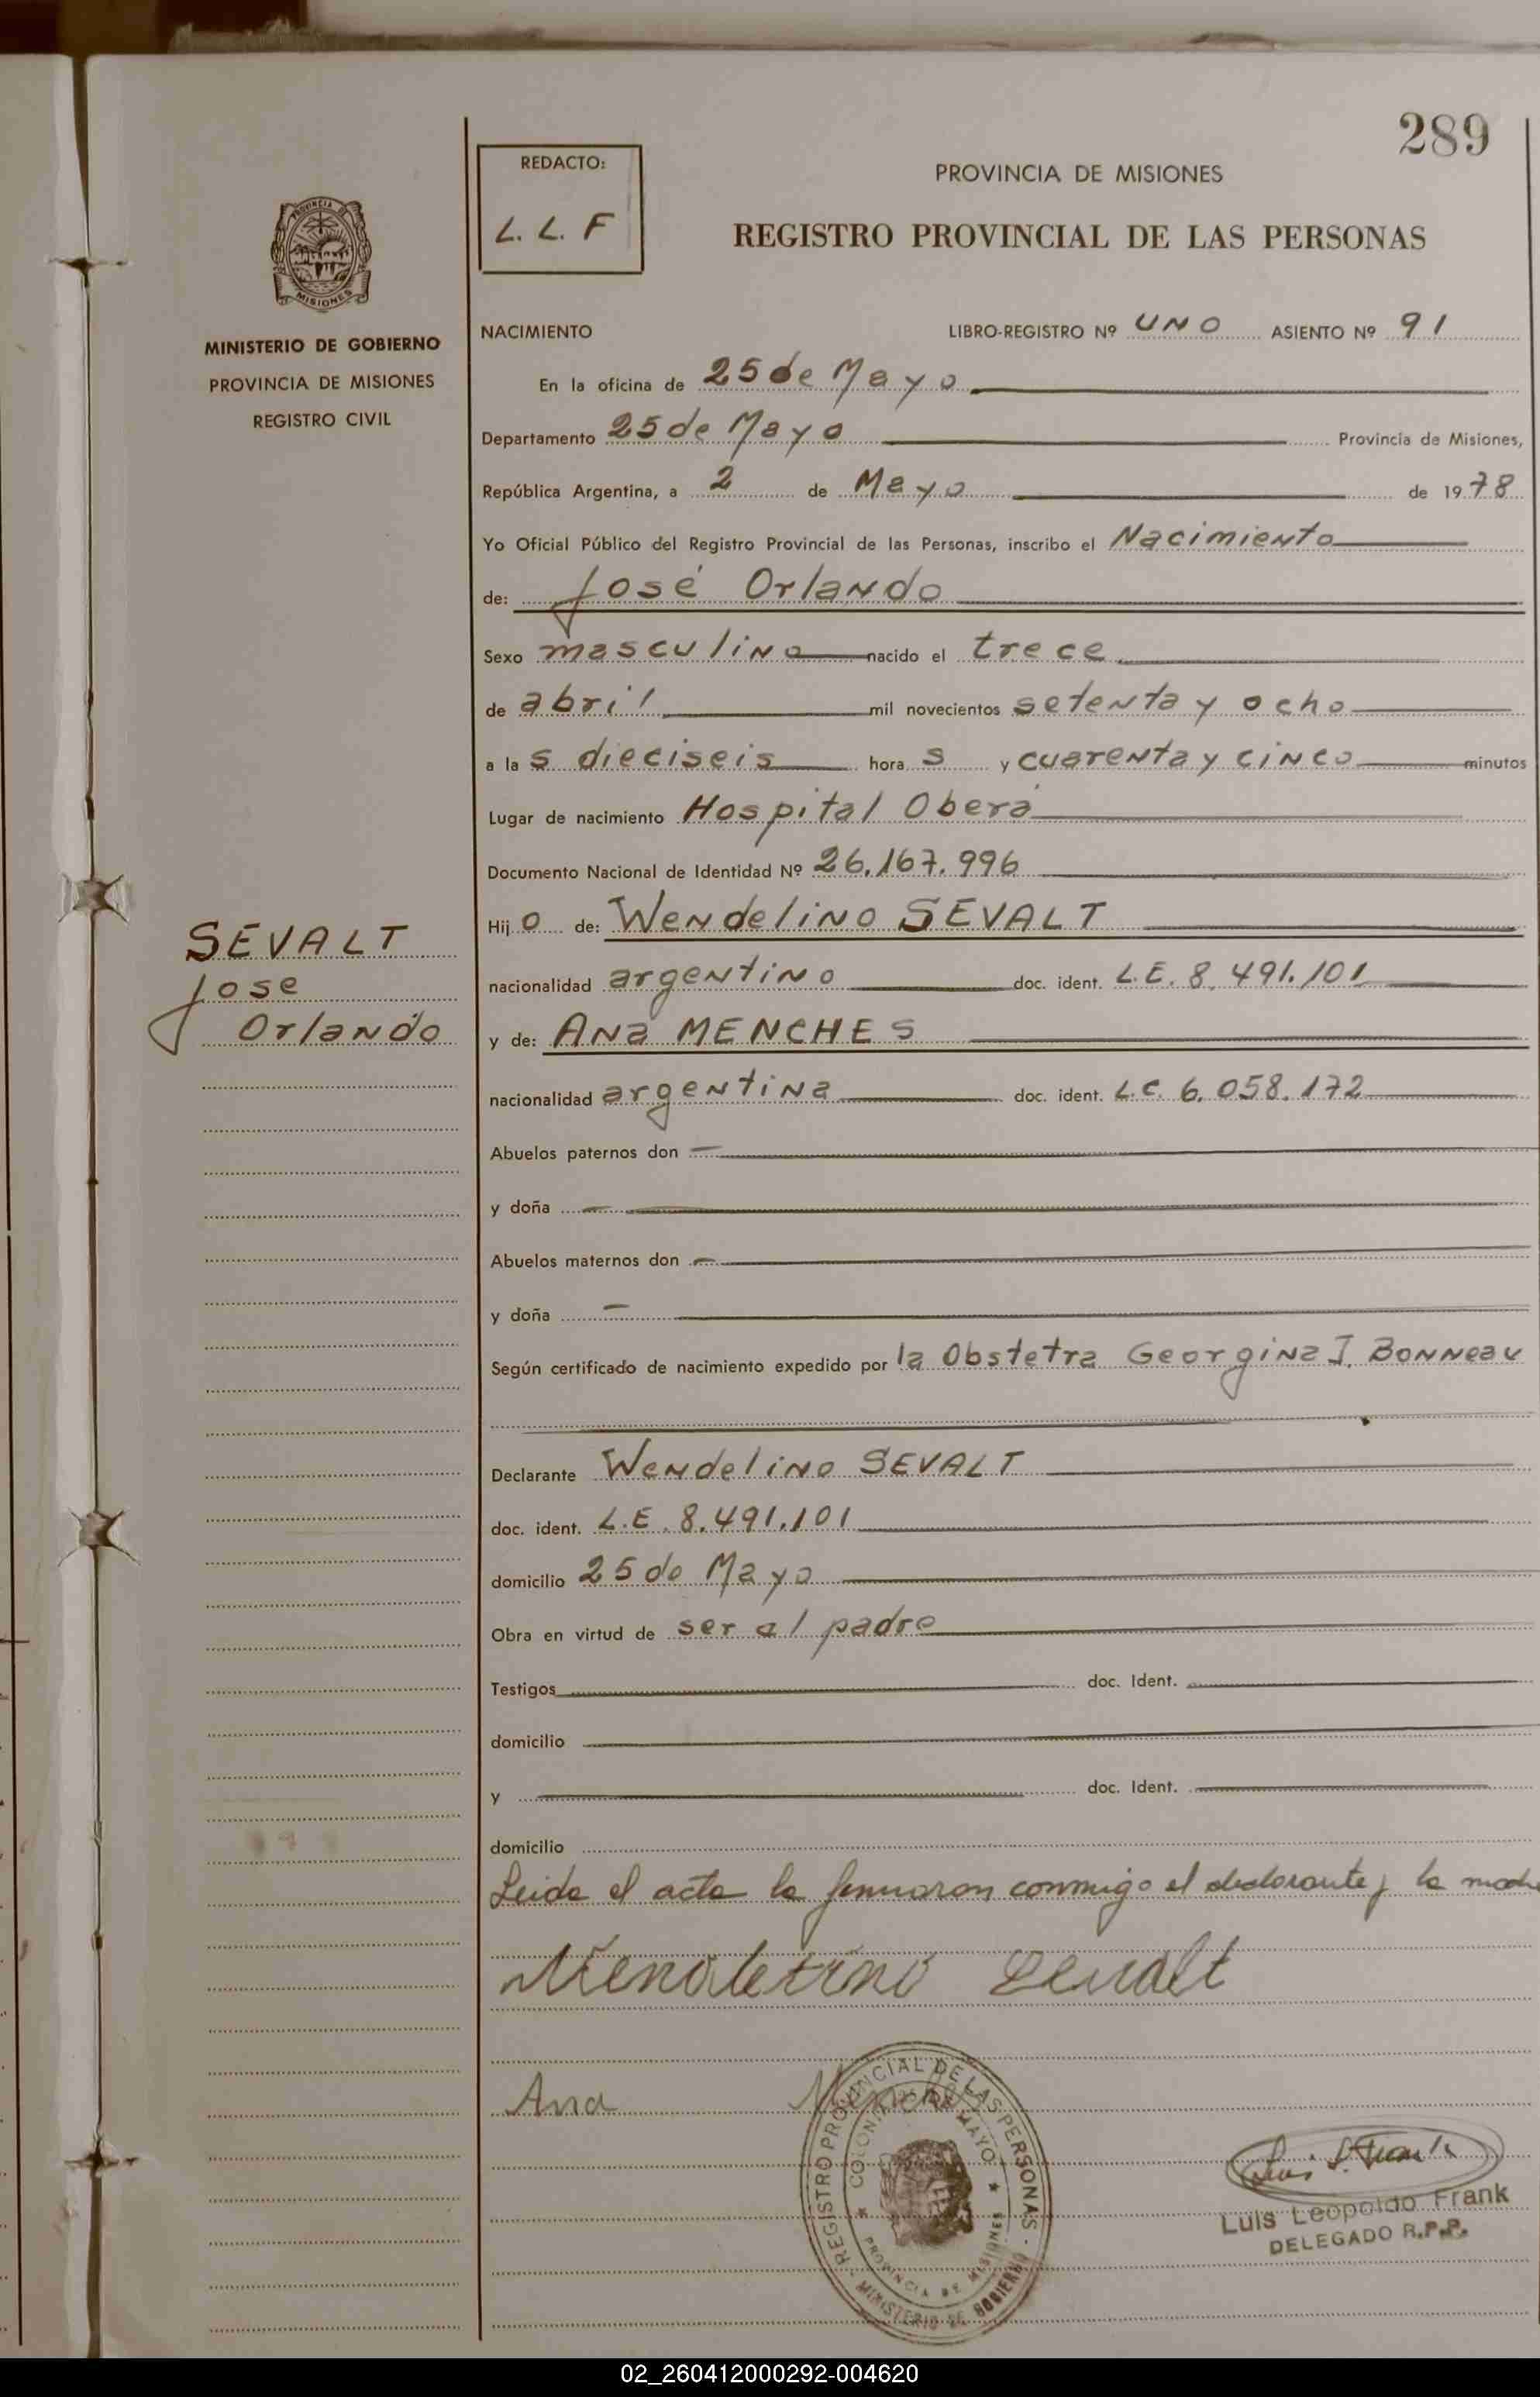 289
REDACTO:
L. L. F
PROVINCIA DE MISIONES
REGISTRO PROVINCIAL DE LAS PERSONAS
PROVINCIA DE
MISIONES
MINISTERIO DE GOBIERNO
PROVINCIA DE MISIONES
REGISTRO CIVIL
NACIMIENTO LIBRO-REGISTRO Nº UNO ASIENTO Nº 91
En la oficina de 25 de Mayo
Departamento 25 de Mayo Provincia de Misiones,
República Argentina, a 2 de Mayo de 1978
Yo Oficial Público del Registro Provincial de las Personas, inscribo el Nacimiento
de: José Orlando
Sexo masculino nacido el trece
de abril mil novecientos setenta y ocho
a las dieciseis horas y cuarenta y cinco minutos
Lugar de nacimiento Hospital Oberá
Documento Nacional de Identidad Nº 26.167.996
Hijo de: Wendelino SEVALT
SEVALT
Jose
Orlando
nacionalidad argentino doc. ident. L.E. 8.491.101
y de: Ana MENCHES
nacionalidad argentina doc. ident. L.C. 6.058.172
Abuelos paternos don —
y doña —
Abuelos maternos don —
y doña —
Según certificado de nacimiento expedido por la Obstetra Georgina J. Bonneau
Declarante Wendelino SEVALT
doc. ident. L.E. 8.491.101
domicilio 25 de Mayo
Obra en virtud de ser el padre
Testigos doc. Ident.
domicilio
y doc. Ident.
domicilio
Leida el acta la firmaron conmigo el declarante y la madre
Wendelino Sevalt
Ana
REGISTRO PROVINCIAL DE LAS PERSONAS
COLONIA 25 DE MAYO
PROVINCIA DE MISIONES
MINISTERIO DE GOBIERNO
Luis L. Frank
Luis Leopoldo Frank
DELEGADO R.P.P.
02_260412000292-004620